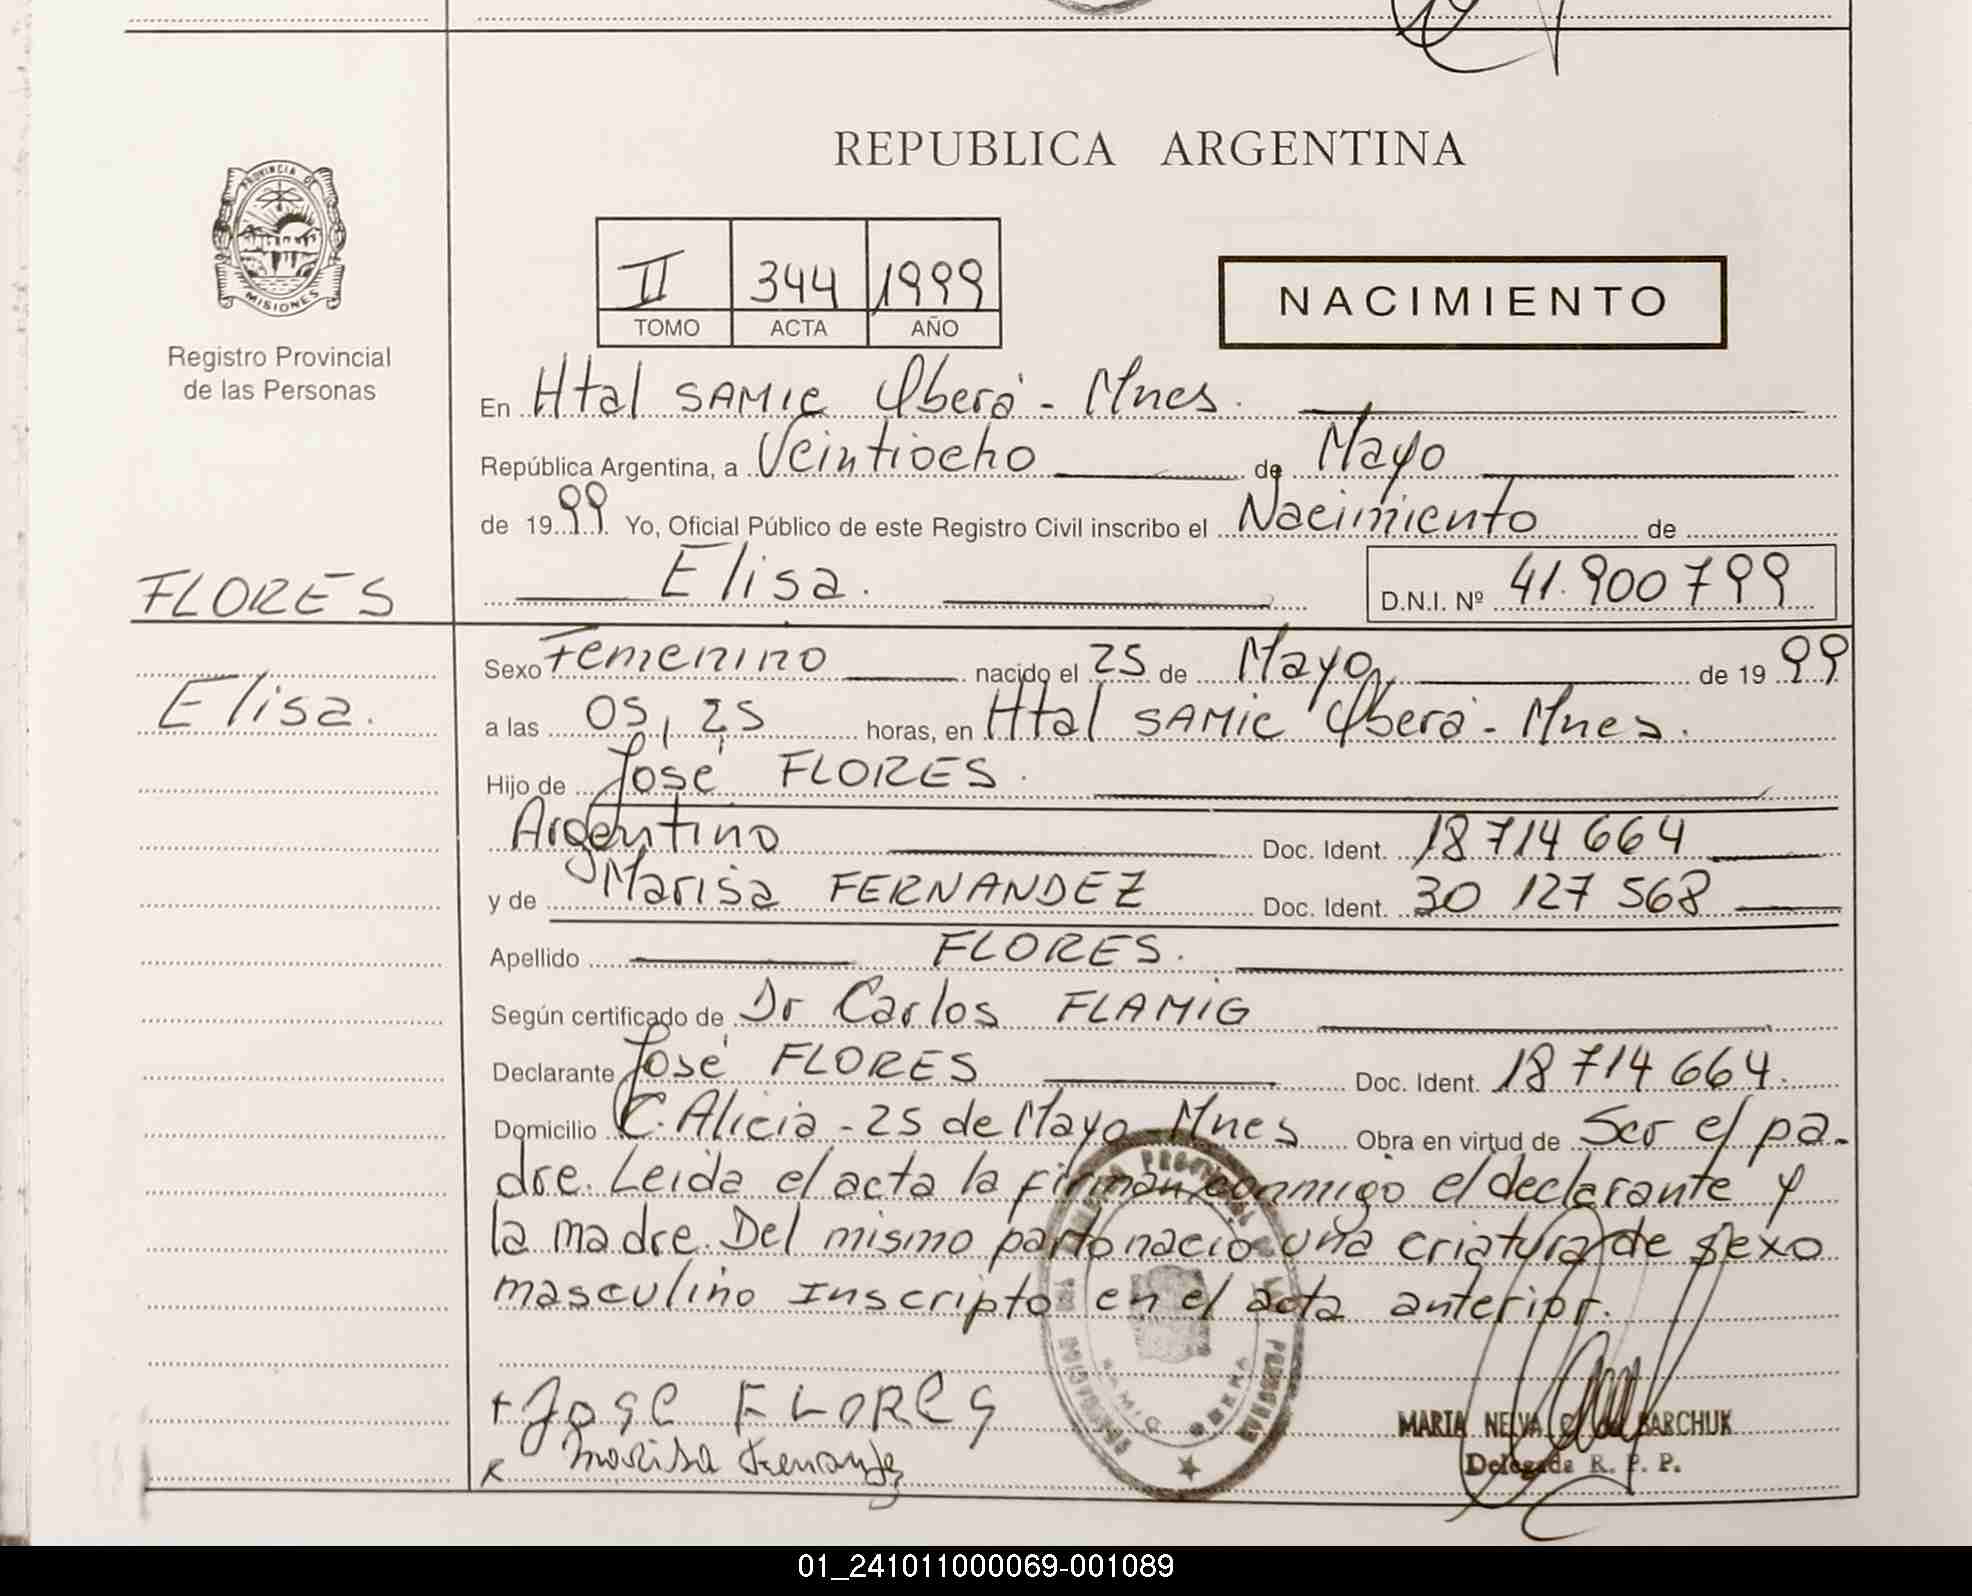 REPUBLICA ARGENTINA
PROVINCIA DE
MISIONES
Registro Provincial
de las Personas
II 344 1999
TOMO ACTA AÑO
NACIMIENTO
En Htal SAMIC Oberá - Mnes.
República Argentina, a Veintiocho de Mayo
de 1999 Yo, Oficial Público de este Registro Civil inscribo el Nacimiento de
FLORES
Elisa.
Elisa. D.N.I. Nº 41.900799
Sexo Femenino nacido el 25 de Mayo de 1999
a las 05,25 horas, en Htal SAMIC Oberá - Mnes.
Hijo de José FLORES.
Argentino Doc. Ident. 18 714 664
y de Marisa FERNANDEZ Doc. Ident. 30 127 568
Apellido FLORES.
Según certificado de Dr Carlos FLAMIG
Declarante José FLORES Doc. Ident. 18 714 664.
Domicilio C. Alicia - 25 de Mayo - Mnes Obra en virtud de Ser el pa-
dre. Leida el acta la firman conmigo el declarante y
la madre. Del mismo parto nació una criatura de sexo
masculino Inscripto en el acta anterior.
+ JOSE FLORES
x Marisa Fernandez
MARIA NELVA C. de BARCHUK
Delegada R. P. P.
01_241011000069-001089